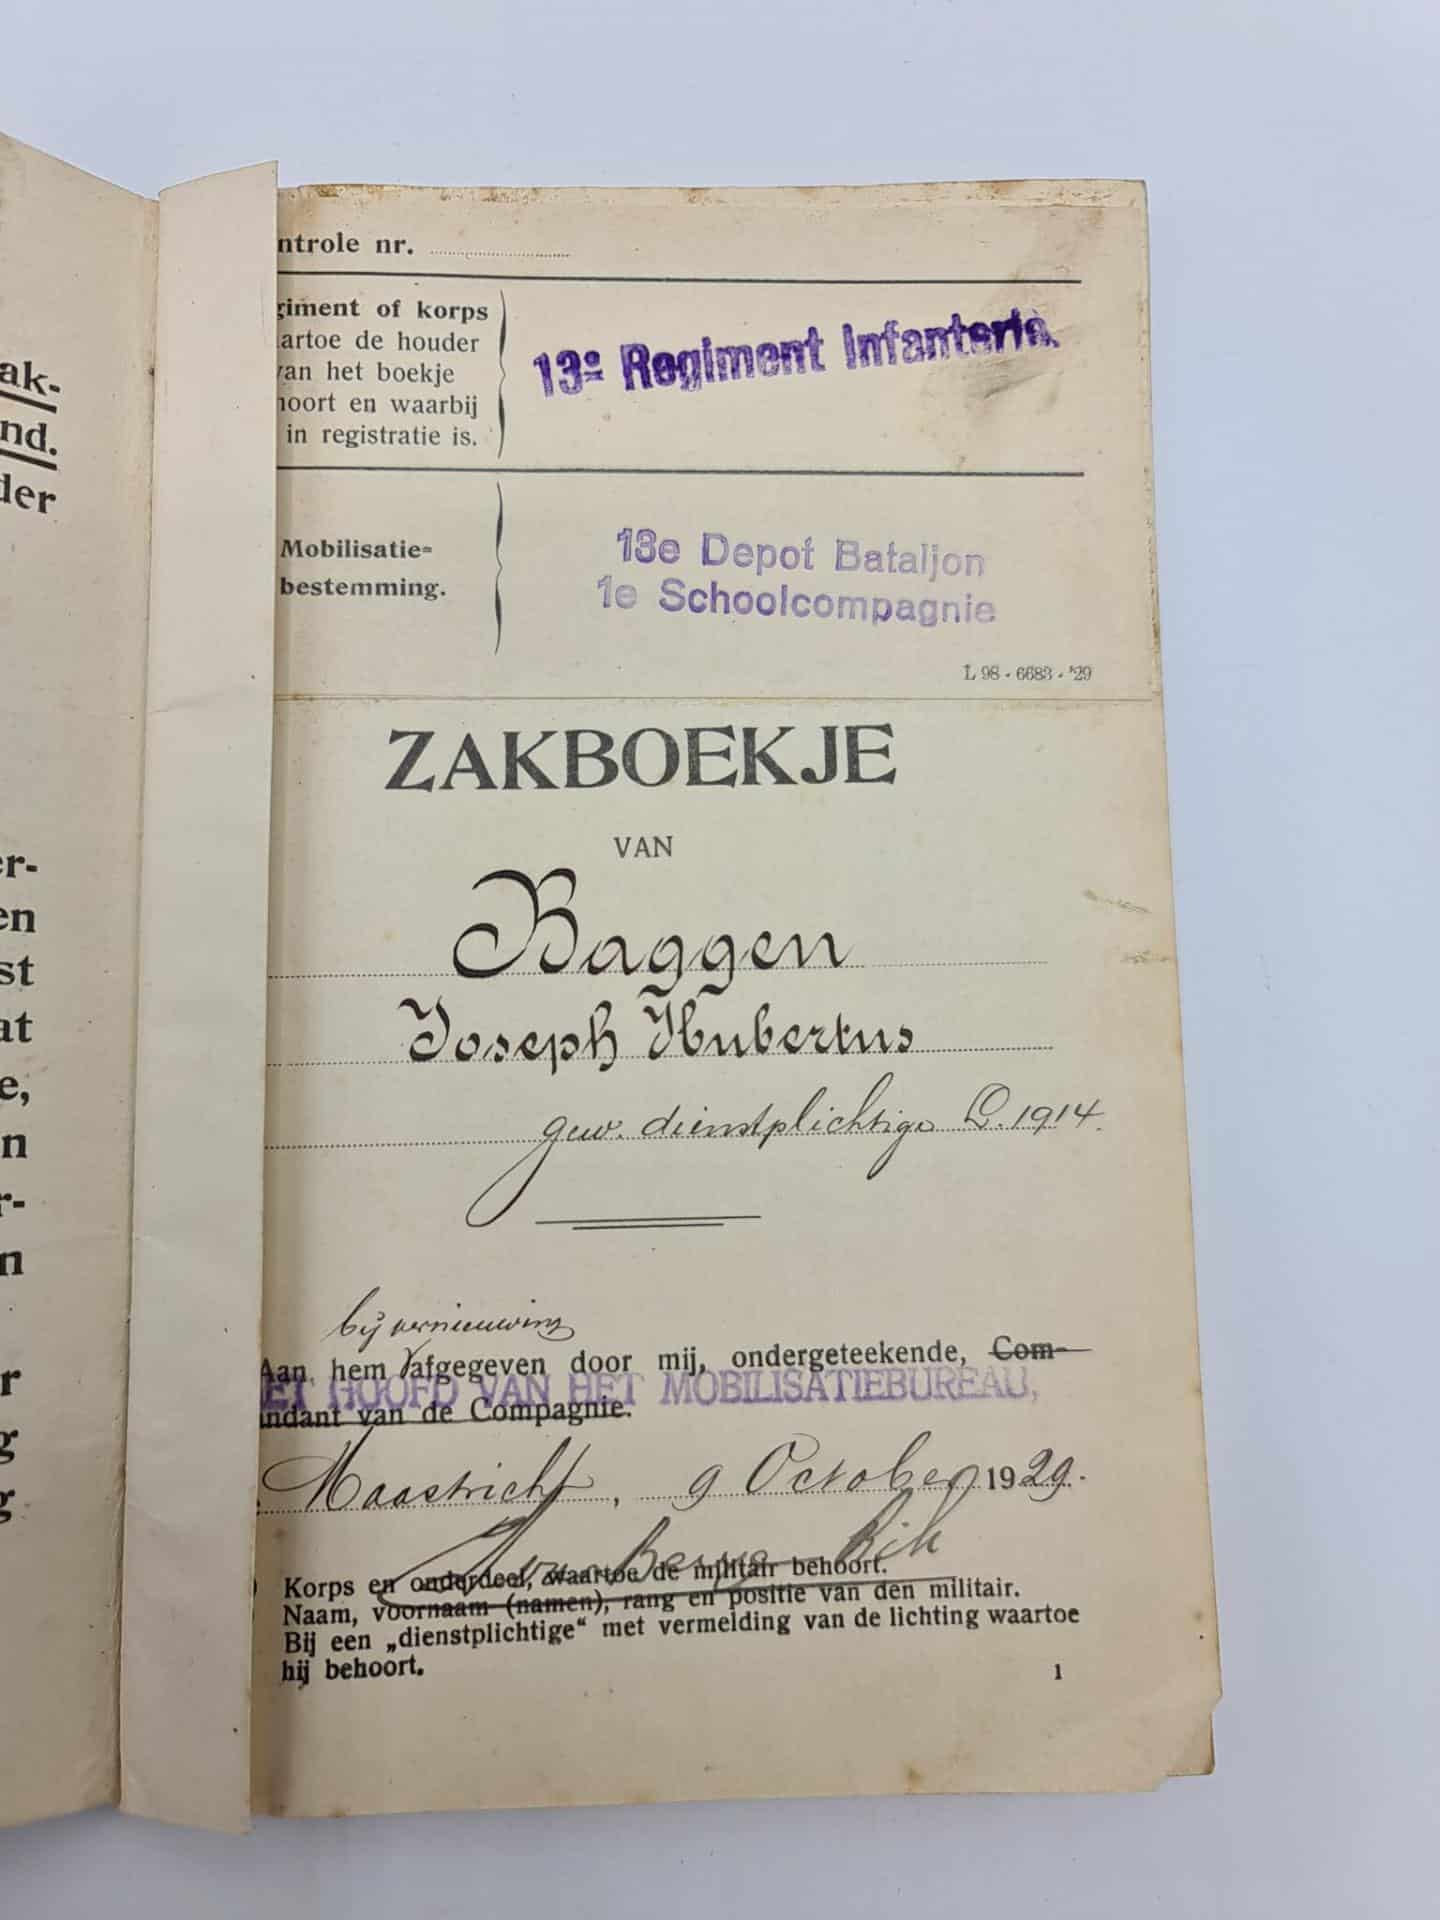 ak-
nd.
der
er-
en
st
at
e,
n
r-
n
r
g
g
ntrole nr.
giment of korps
artoe de houder
van het boekje
hoort en waarbij
in registratie is.
13e Regiment Infanterie.
Mobilisatie-
bestemming.
13e Depot Bataljon
1e Schoolcompagnie
L 98 - 6683 - '29
ZAKBOEKJE
VAN
Baggen
Joseph Hubertus
gew. dienstplichtige L. 1914.
bij vernieuwing
Aan hem afgegeven door mij, ondergeteekende, Com-
ET HOOFD VAN HET MOBILISATIEBUREAU,
andant van de Compagnie.
Maastricht, 9 October 1929.
Korps en onderdeel, waartoe de militair behoort.
Naam, voornaam (namen), rang en positie van den militair.
Bij een „dienstplichtige“ met vermelding van de lichting waartoe
hij behoort.
1